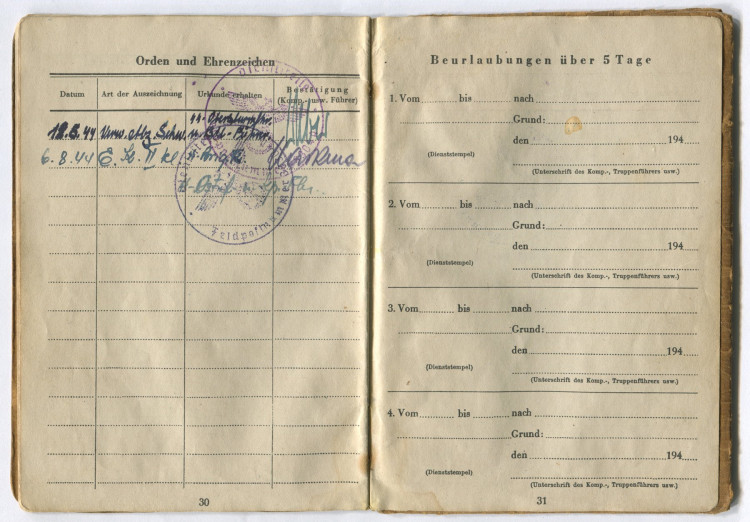 Orden und Ehrenzeichen
Datum Art der Auszeichnung Urkunde erhalten Bestätigung (Komp.- usw. Führer)
18.5.44 Verw. Abz. Schw.
6.8.44 E. K. II kl
Feldpostn
30
Beurlaubungen über 5 Tage
1. Vom bis nach
Grund:
den 194
(Dienststempel)
(Unterschrift des Komp.-, Truppenführers usw.)
2. Vom bis nach
Grund:
den 194
(Dienststempel)
(Unterschrift des Komp.-, Truppenführers usw.)
3. Vom bis nach
Grund:
den 194
(Dienststempel)
(Unterschrift des Komp.-, Truppenführers usw.)
4. Vom bis nach
Grund:
den 194
(Dienststempel)
(Unterschrift des Komp.-, Truppenführers usw.)
31